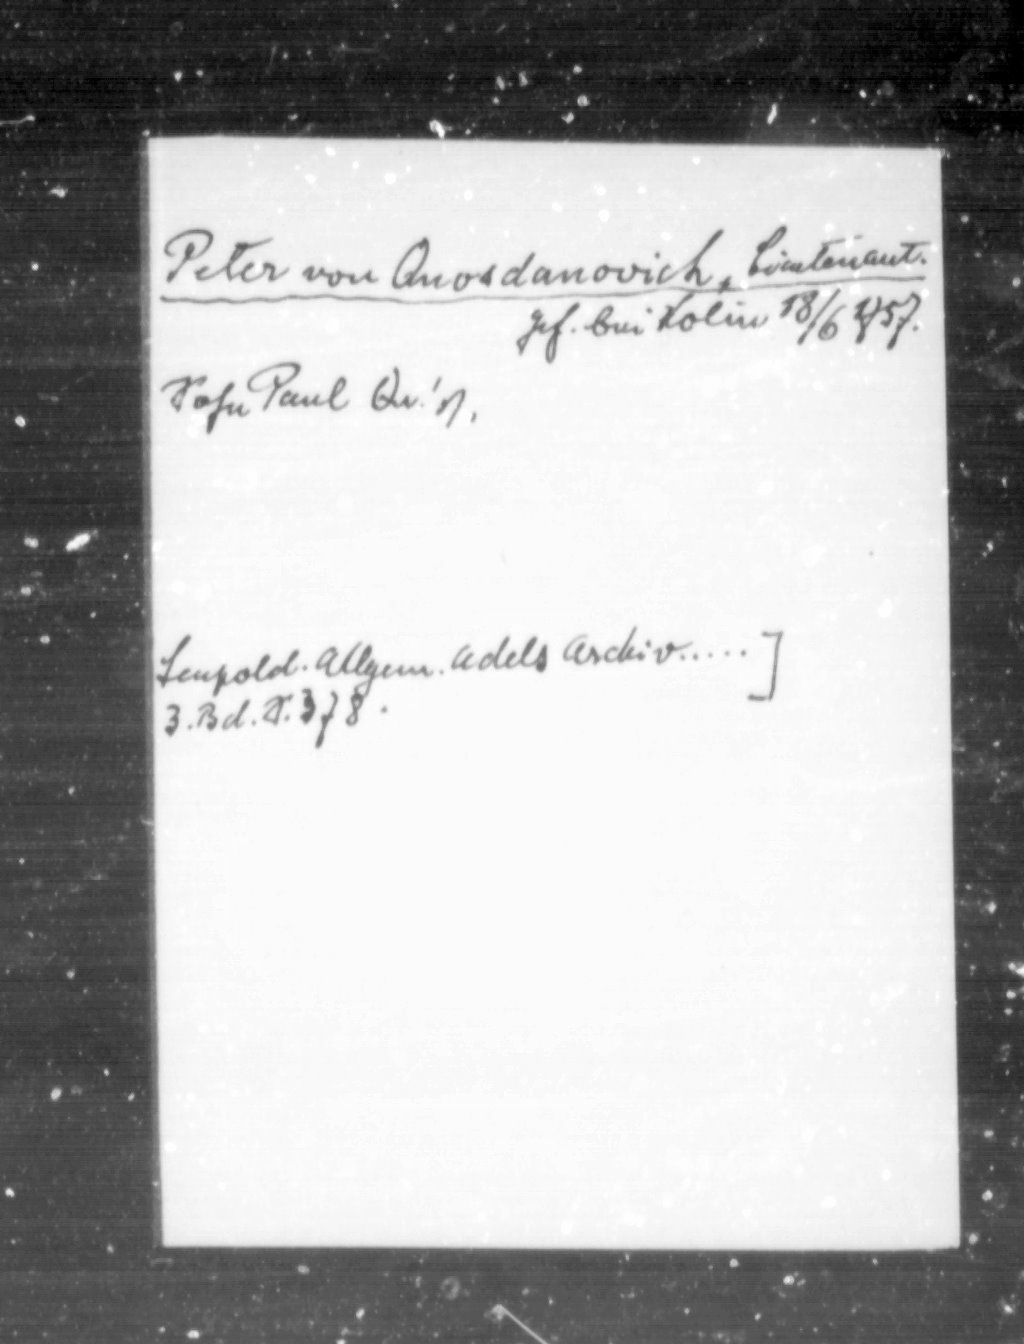 Peter von Quosdanovich, Lieutenant.
gef. bei Kolin 18/6 1757.
Sohn Paul Qu.'s.
Leupold. Allgem. Adels Archiv.....]
3. Bd. S. 378.